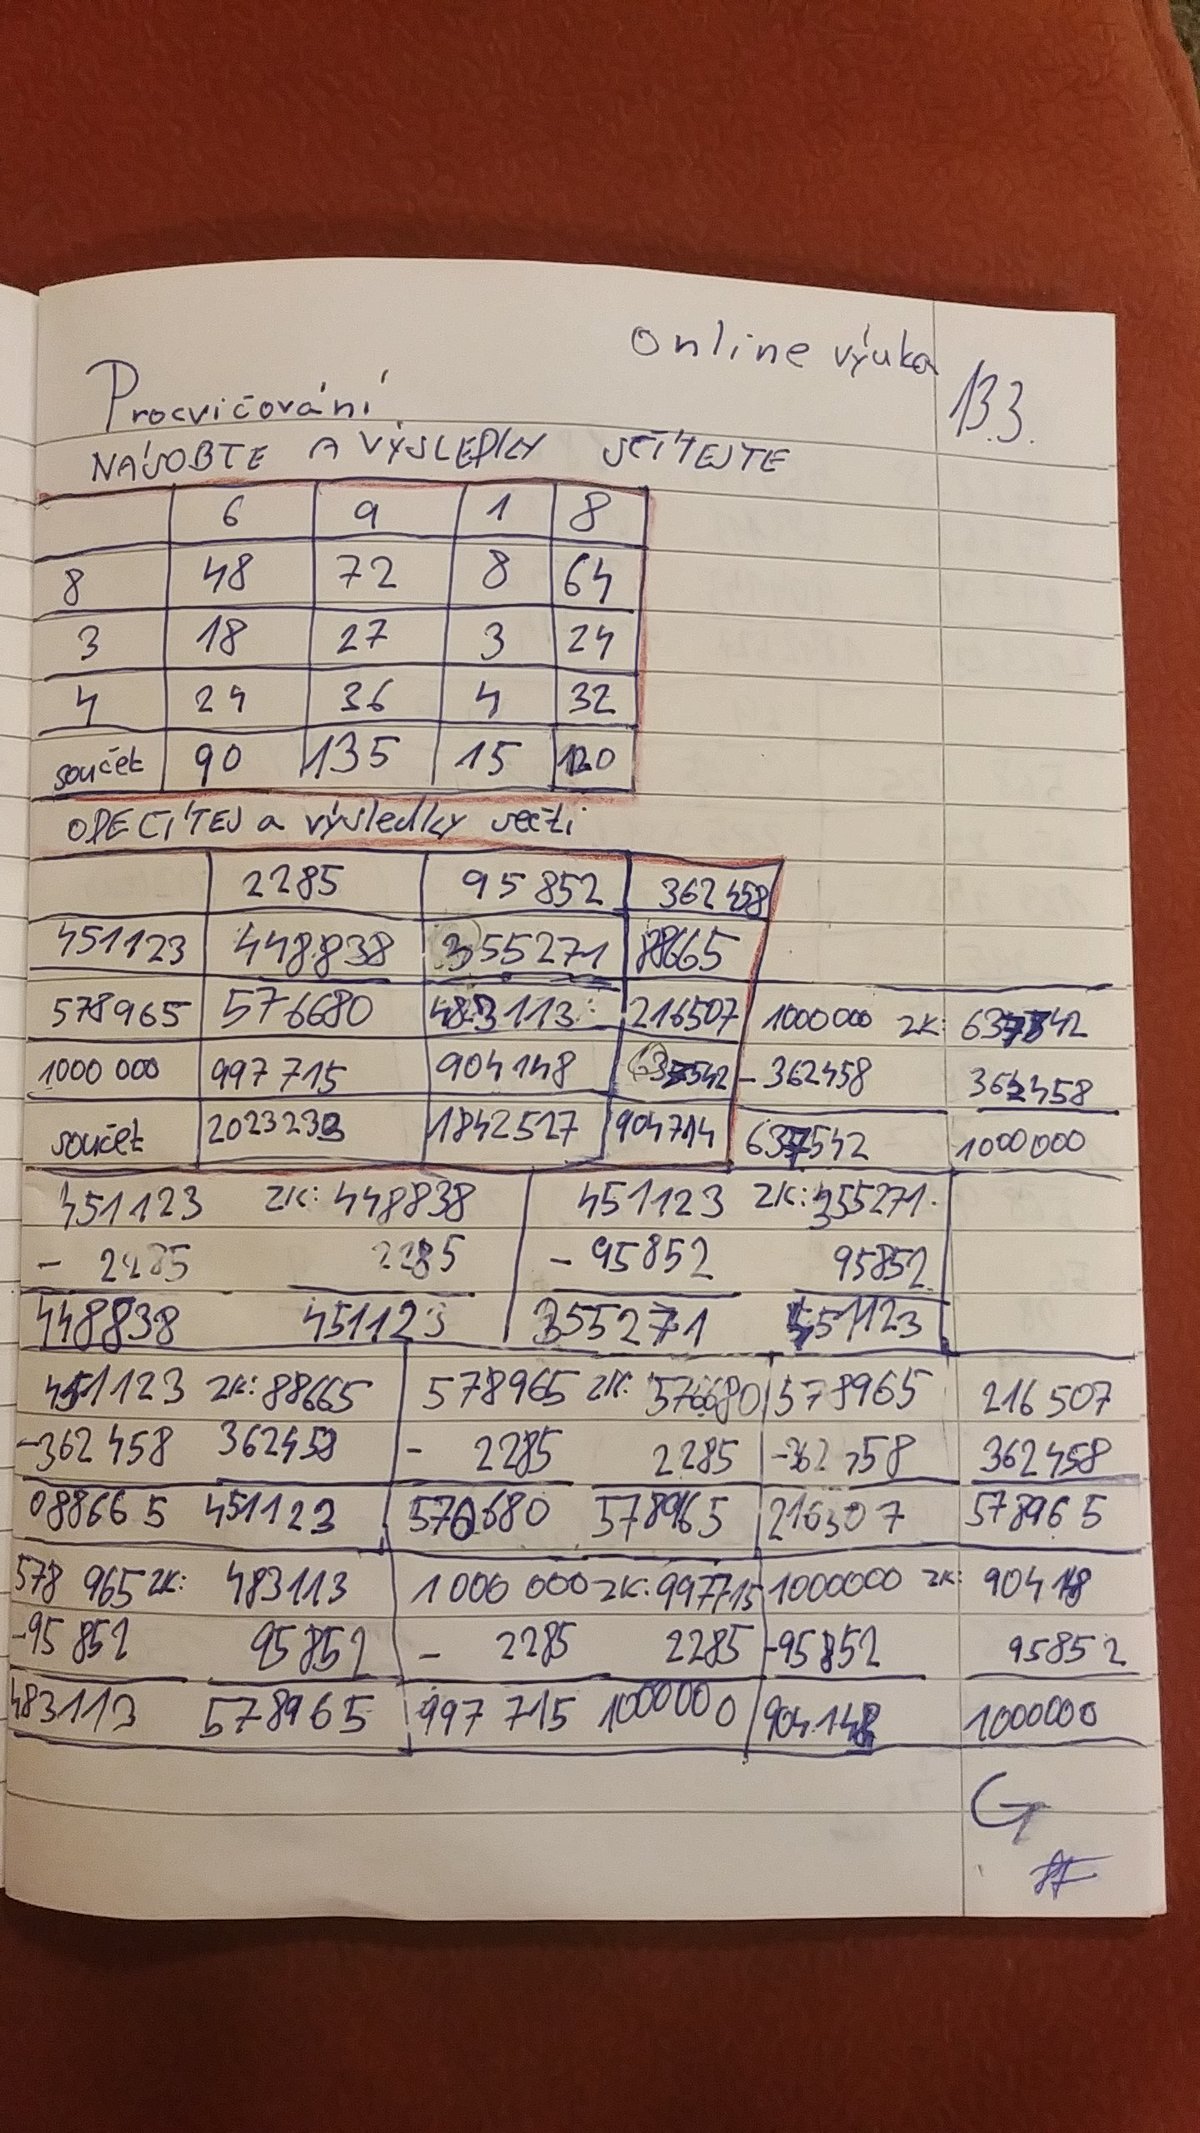 Online výuka
Procvičování 13.3.
NÁSOBTE A VÝSLEDKY SČÍTEJTE
6 9 1 8
8 48 72 8 64
3 18 27 3 24
4 24 36 4 32
součet 90 135 15 120
ODEČÍTEJ a výsledky sečti
2285 95852 362458
451123 448838 355271 88665
578965 576680 483113 216507 1000000 ZK: 637542
1000 000 997 715 904148 637542 - 362458 362458
součet 2023233 1842527 904714 637542 1000000
451123 ZK: 448838 451123 ZK: 355271
- 2285 2285 - 95852 95852
448838 451123 355271 451123
451123 ZK: 88665 578965 ZK: 576680 578965 216507
-362458 362458 - 2285 2285 -362458 362458
088665 451123 576680 578965 216507 578965
578 965 ZK: 483113 1 000 000 ZK: 997715 1000000 ZK: 904148
-95852 95852 - 2285 2285 -95852 95852
483113 578965 997 715 1000000 904148 1000000
G